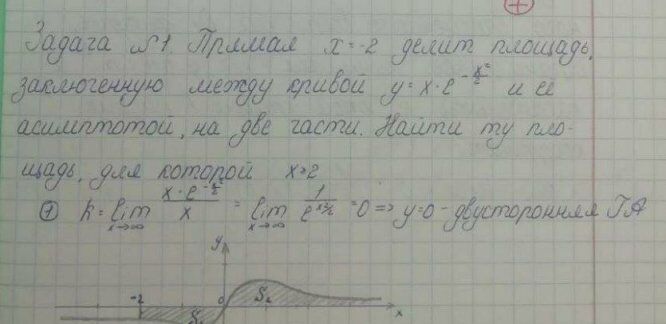 Задача №1. Прямая x=-2 делит площадь,
заключенную между кривой y=x·e^{-x²/2} и её
асимптотой, на две части. Найти ту пло-
щадь, для которой x>2
① k=lim_{x→∞} (x·e^{-x²/2})/x = lim_{x→∞} 1/e^{x²/2} =0 ⇒ y=0 - двусторонняя ГА
y
-2 0 S₂
S₁ x